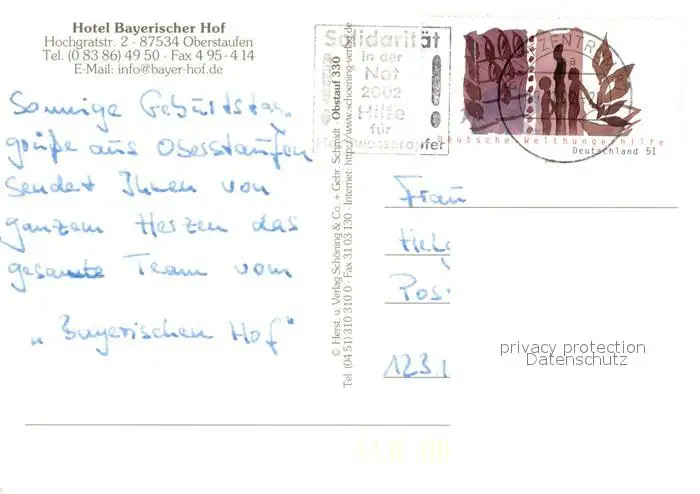 Hotel Bayerischer Hof
Hochgratstr. 2 - 87534 Oberstaufen
Tel. (0 83 86) 49 50 · Fax 4 95 - 4 14
E-Mail: info@bayer-hof.de
Sonnige Geburtstags-
grüße aus Oberstaufen
sendet Ihnen von
ganzem Herzen das
gesamte Team vom
„Bayerischen Hof"
© Herst. u. Verlag Schöning & Co. + Gebr. Schmidt · Obstauf 330
Tel. (04 51) 310 310 0 · Fax 31 03 130 · Internet: http://www.schoening-verlag.de
Solidarität
in der
Not
2002
Hilfe
für
Hochwasseropfer
FZENTR
Deutsche Welthungerhilfe
Deutschland 51
Frau
Pos
123
privacy protection
Datenschutz